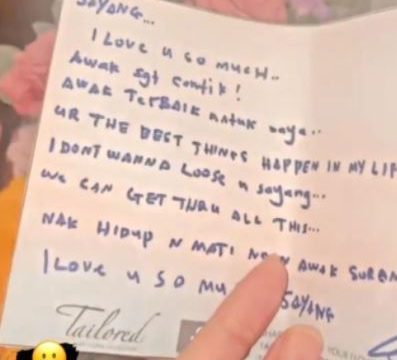 SAYANG...
I LOVE u SO mUCH..
AWAK sgt comtik!
AWAK TerBAIK untuk saya..
UR THE BEST THINGS HAPPEN IN MY LIF
I DONT WANNA LOOSE u sayang...
WE CAN GET THRU ALL THIS...
NAK HIDUP N MATI AWAK
I LOVE u SO MU SAYANG
Tailored